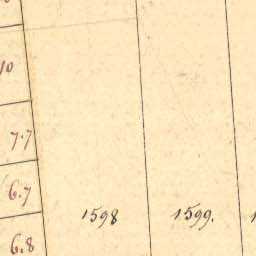 10
7.7
6.7
1598 1599.
6.8